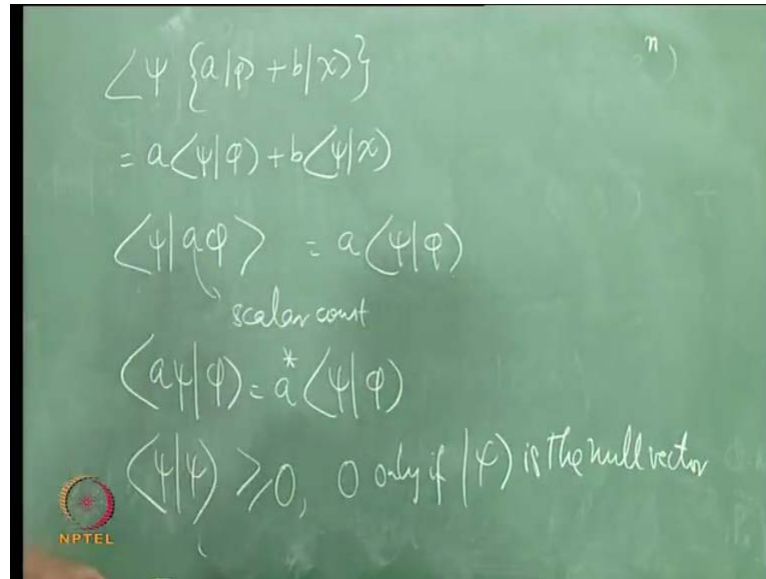 ⟨ψ {a|φ⟩ + b|χ⟩} n)
= a⟨ψ|φ⟩ + b⟨ψ|χ⟩
⟨ψ|aφ⟩ = a⟨ψ|φ⟩
scalar const
⟨aψ|φ⟩ = a*⟨ψ|φ⟩
⟨ψ|ψ⟩ ⩾ 0, 0 only if |ψ⟩ is the null vector
NPTEL